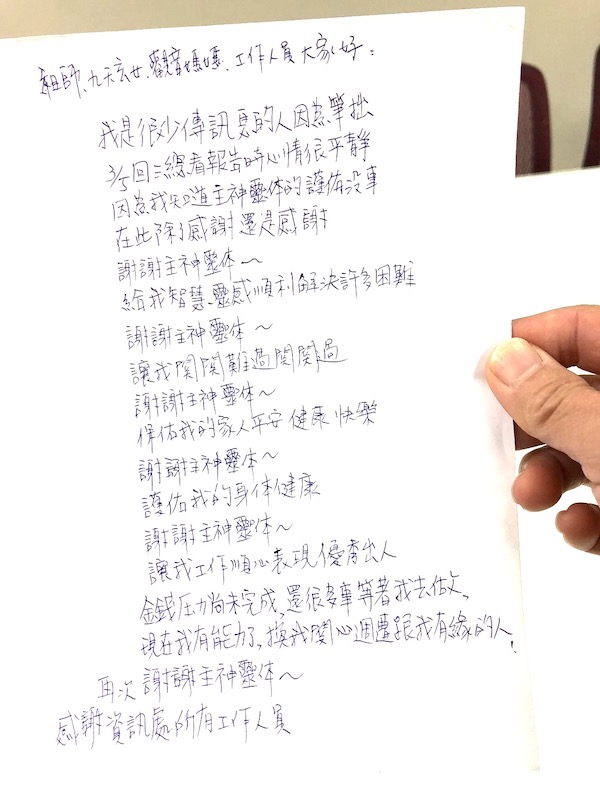 祖師、九天玄女、觀音媽媽、工作人員大家好:
我是很少傳訊息的人因為筆拙
3/5回三總看報告時心情很平靜
因為我知道主神靈体的護佑沒事
在此除了感謝還是感謝
謝謝主神靈体~
給我智慧、靈感順利解決許多困難
謝謝主神靈体~
讓我関関難過関関過
謝謝主神靈体~
保佑我的家人平安 健康 快樂
謝謝主神靈体~
護佑我的身体健康
謝謝主神靈体~
讓我工作順心表現優秀出人
金錢压力尚未完成,還很多事等著我去做,
現在我有能力了,換我関心週遭跟我有緣的人!
再次 謝謝主神靈体~
感謝資訊處所有工作人員